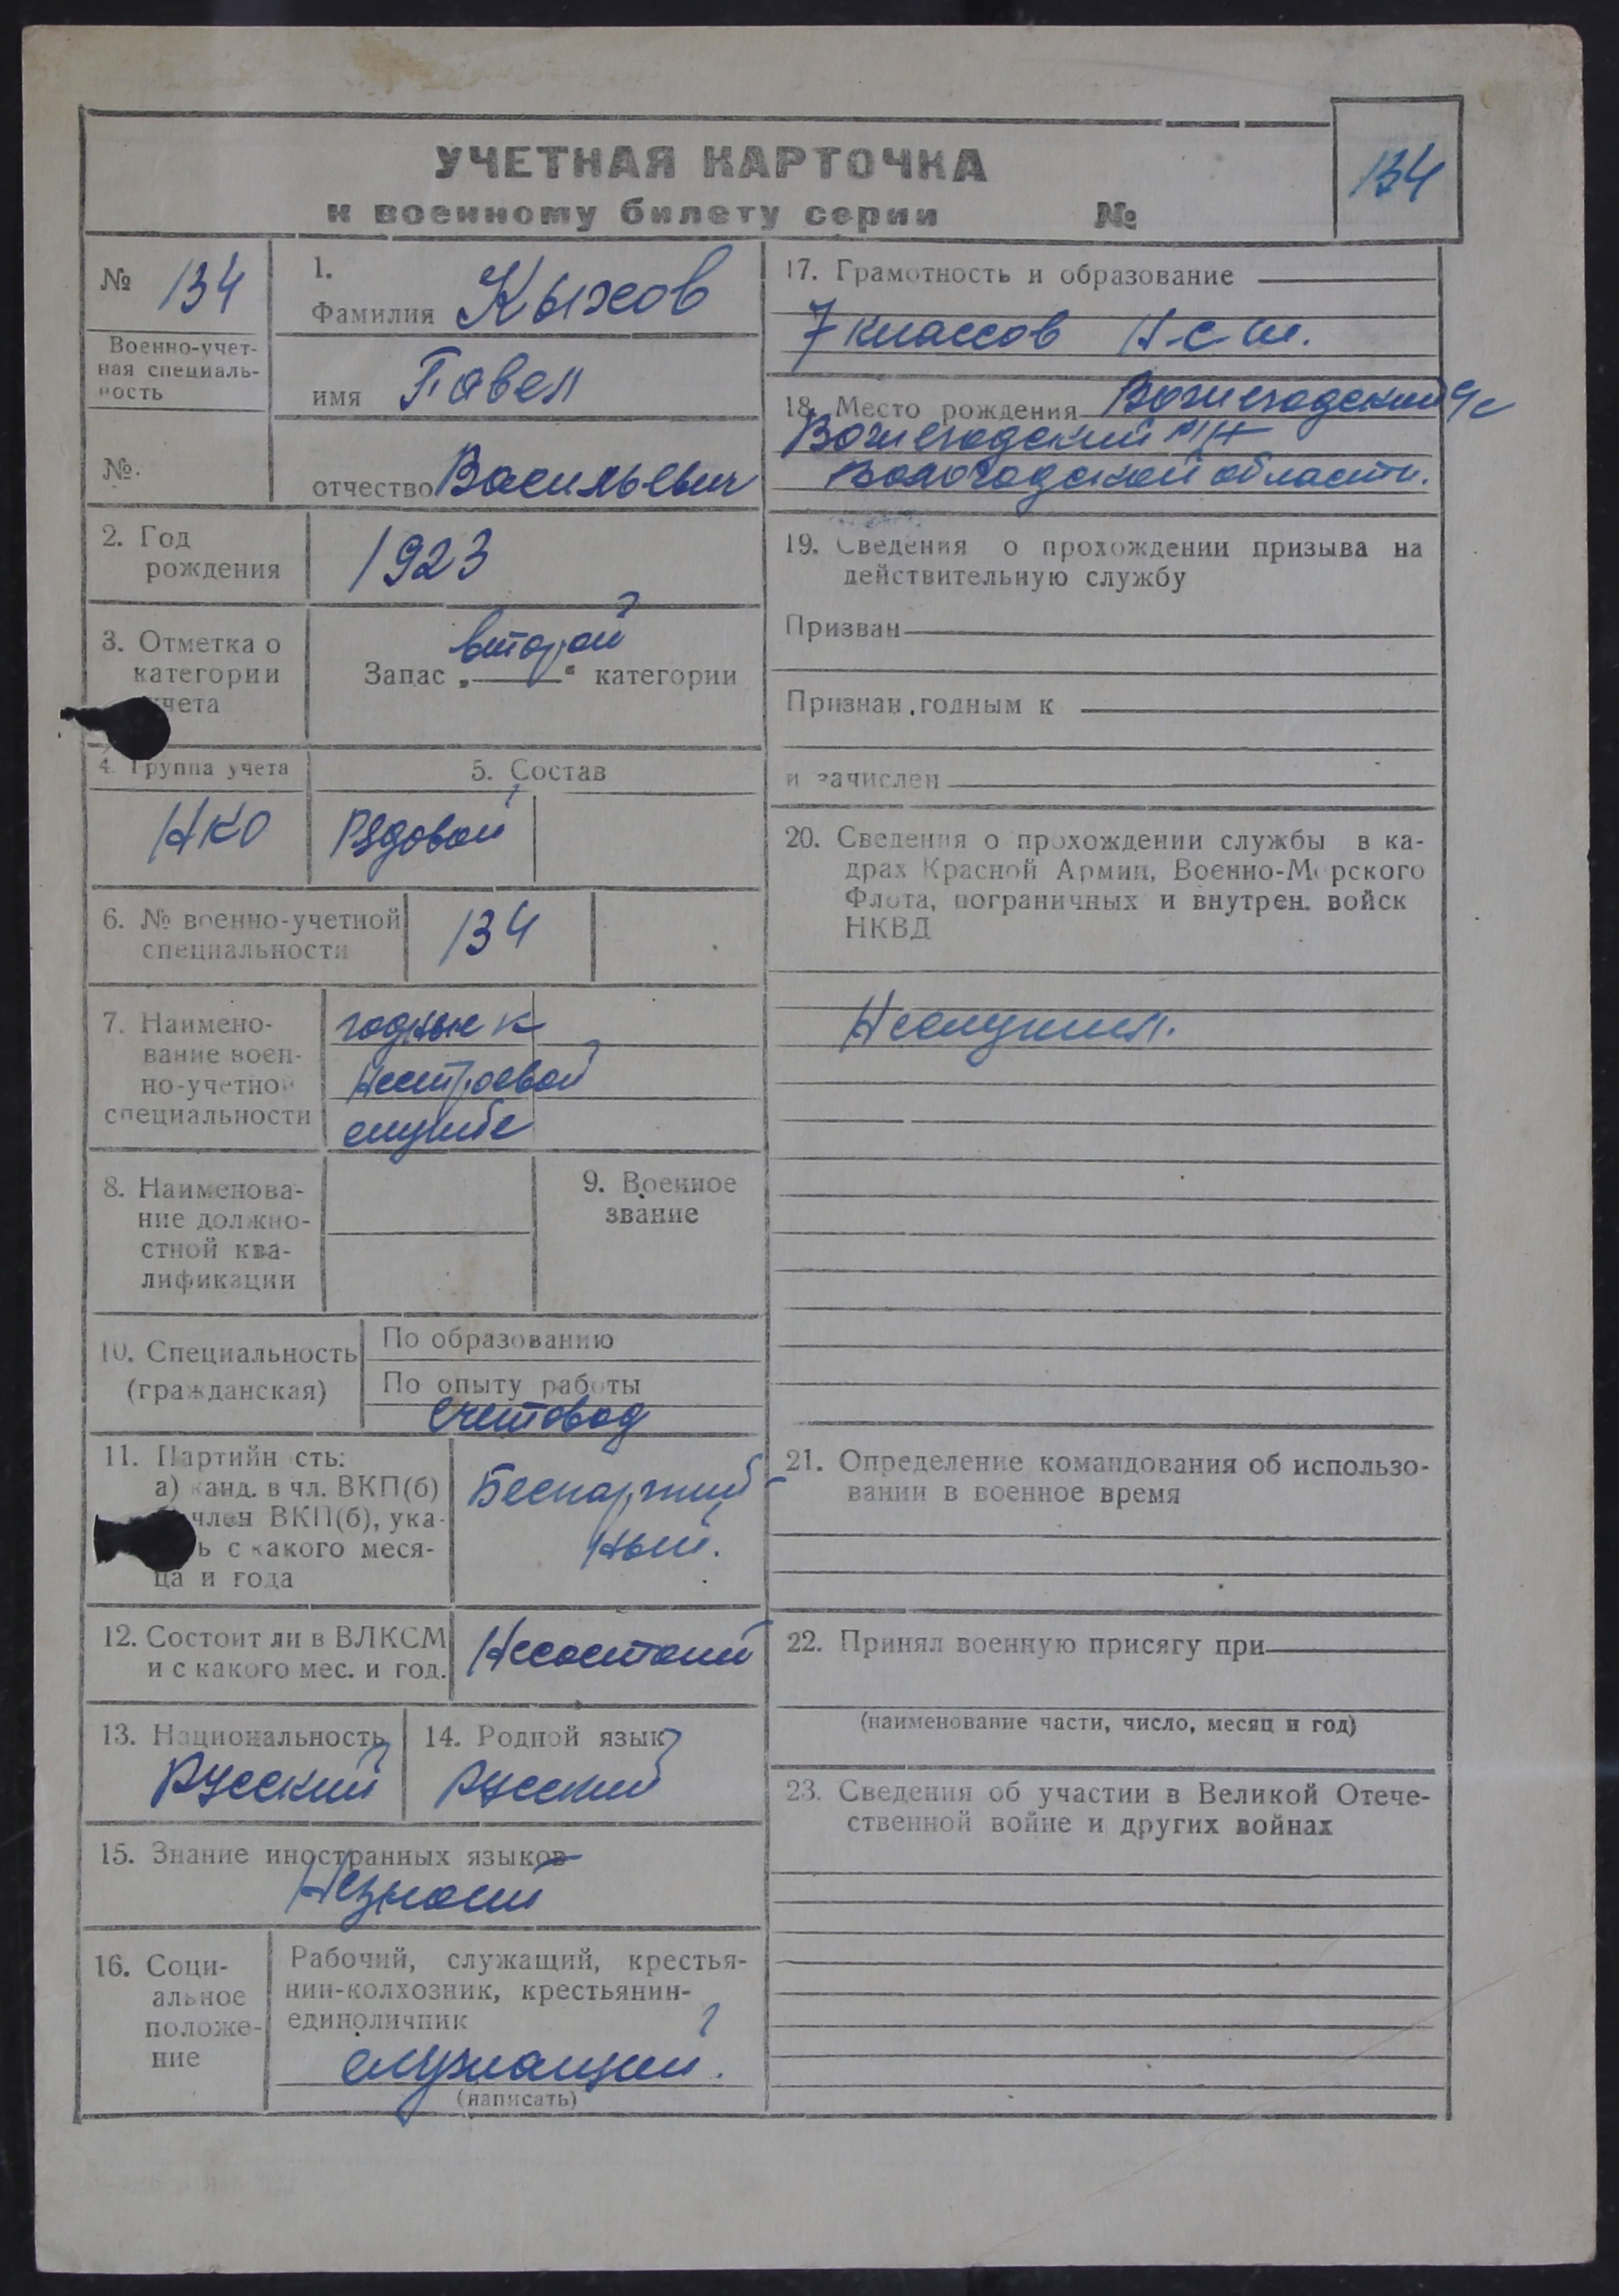 УЧЕТНАЯ КАРТОЧКА
к военному билету серии №
134
№ 134
Военно-учет-
ная специаль-
ность
№.
1.
Фамилия Кыхов
имя Павел
отчество Васильевич
2. Год
рождения
1923
3. Отметка о
категории
учета
второй
Запас „ “ категории
4. Группа учета
НКО
5. Состав
Рядовой
6. № военно-учетной
специальности
134
7. Наимено-
вание воен-
но-учетной
специальности
годные к
нестроевой
службе
8. Наименова-
ние должно-
стной ква-
лификации
9. Военное
звание
10. Специальность
(гражданская)
По образованию
По опыту работы
Счетовод
11. Партийн сть:
а) канд. в чл. ВКП(б)
член ВКП(б), ука-
ь с какого меся-
ца и года
Беспартий
ный.
12. Состоит ли в ВЛКСМ
и с какого мес. и год.
Несостоит
13. Национальность
Русский
14. Родной язык
Русский
15. Знание иностранных языков
Незнает
16. Соци-
альное
положе-
ние
Рабочий, служащий, крестья-
нин-колхозник, крестьянин-
единоличник
служащий.
(написать)
17. Грамотность и образование
7 классов Н-с-ш.
18. Место рождения Вожегодский с/с
Вожегодский р/н
Вологодской области.
19. Сведения о прохождении призыва на
действительную службу
Призван
Признан годным к
и зачислен
20. Сведения о прохождении службы в ка-
драх Красной Армии, Военно-Морского
Флота, пограничных и внутрен. войск
НКВД
Неслужил.
21. Определение командования об использо-
вании в военное время
22. Принял военную присягу при
(наименование части, число, месяц и год)
23. Сведения об участии в Великой Отече-
ственной войне и других войнах